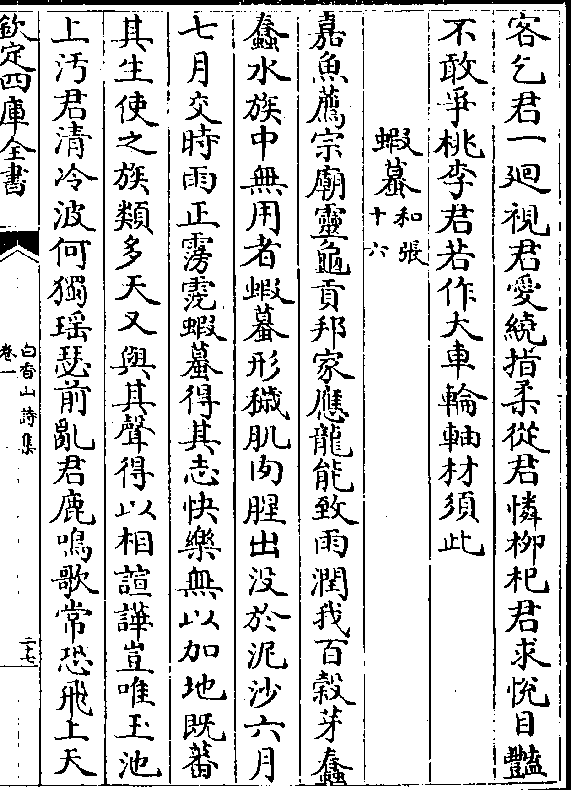 客乞君一廻視君愛繞指柔從君憐柳杞君求悅目豔
不敢爭桃李君若作大車輪軸材須此
蝦蟇和張十六
嘉魚薦宗廟靈龜貢邦家應龍能致雨潤我百穀芽蠢
蠢水族中無用者蝦蟇形穢肌肉腥出没於泥沙六月
七月交時雨正霶霑蝦蟇得其志快樂無以加地既蕃
其生使之族類多天又與其聲得以相諠譁豈唯玉池
上汚君清冷波何獨瑶瑟前亂君鹿鳴歌常恐飛上天
欽定四庫全書
白香山詩集
卷一
二十七